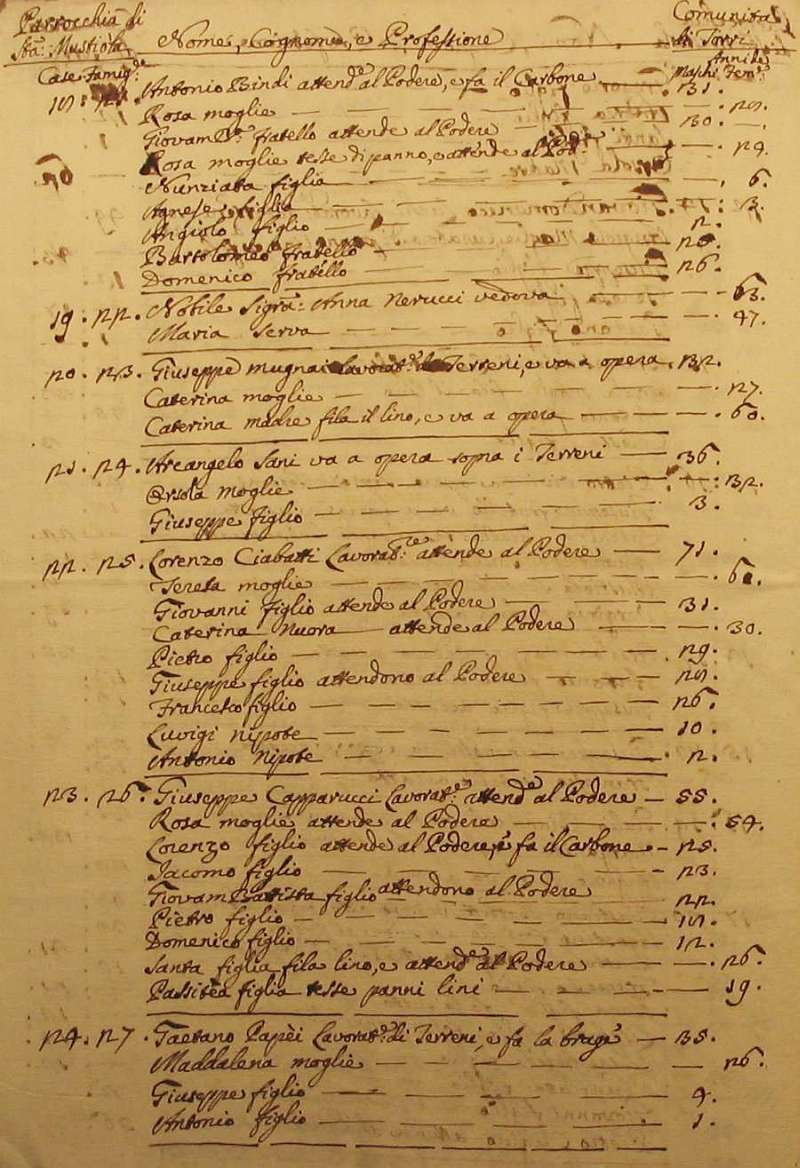 Parrocchia di
Sta: Mustiola Nome, Cognome, e Professione
Comunità
di Torri
Anni de
Case famigle Maschi Fem:
Antonio Bindi attende al Podere, e fa il Carbone — 31.
Rosa moglie —
Giovam Bta: fratello attende al Podere — 30.
Rosa moglie tesse di panno, e attende al Pode — 29.
Nunziata figlia — 6.
Agnese figlia — 3.
Angiolo figlio — 2.
Bartolomeo fratello —
Domenico fratello — 26.
19. 22. Nobile Sigra: Anna Nerucci vedova — 63.
Maria Serva — 47.
20. 23. Giuseppe Mugnai Lavorate: di Terreni, e va a opera. 32.
Caterina moglie — 27.
Caterina madre fila il lino, e va a opera — 60.
21. 24. Arcangelo Sani va a opera sopra i Terreni — 36.
Orsola moglie — 32.
Giuseppe figlio — 3.
22. 25. Lorenzo Ciabatti Lavorate: attende al Podere — 71.
Teresa moglie —
Giovanni figlio attende al Podere — 31.
Caterina Nuora — attende al Podere — 30.
Pietro figlio — 29.
Giuseppe figlio attendono al Podere —
Francesco figlio — 26.
Luvigi nipote — 10.
Antonio Nipote — 2.
23. 26. Giuseppe Capparucci Lavorate: attende al Podere — 55.
Rosa moglie attende al Podere — 54.
Lorenzo figlio attende al Podere, e fa il Carbone — 25.
Jacomo figlio — 23.
Giovam Battista figlio attendono al Podere — 22.
Pietro figlio —
Domenico figlio — 12.
Santa figlia fila lino, e attende al Podere — 26.
Passitea figlia tesse panni lini — 19.
24. 27. Gaetano Papèi Lavorate: di Terreni, e fa la brage — 35.
Maddalena moglie — 26.
Giuseppe figlio — 4.
Antonio figlio — 1.